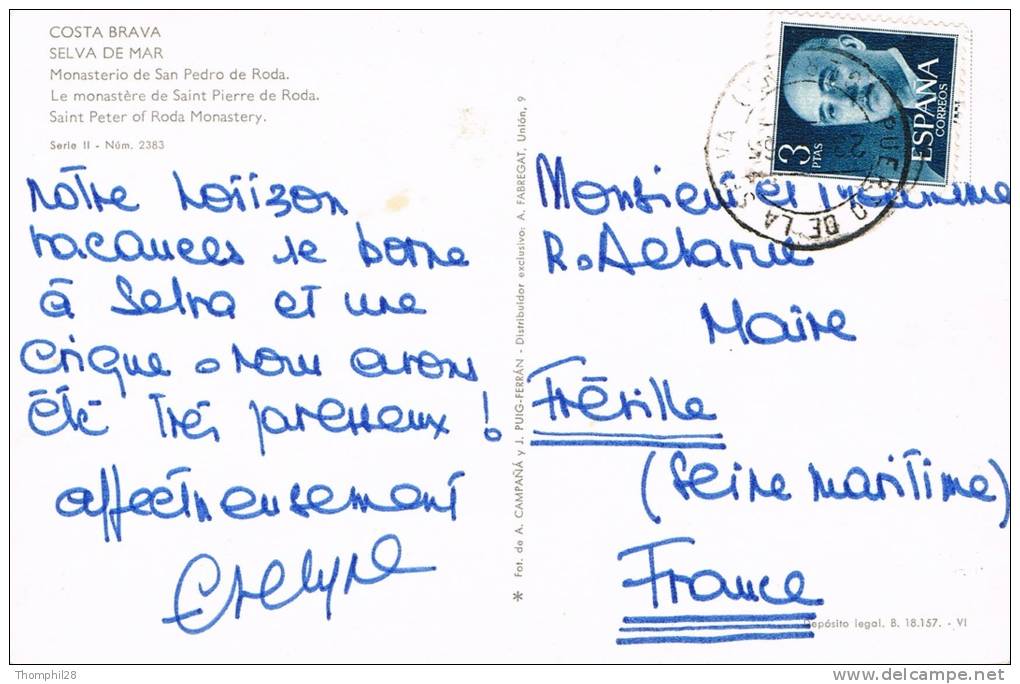 COSTA BRAVA
SELVA DE MAR
Monasterio de San Pedro de Roda.
Le monastère de Saint Pierre de Roda.
Saint Peter of Roda Monastery.
Serie II - Núm. 2383
Notre horizon
vacances se borne
à Selva et une
crique - nous avons
été très paresseux !
affectueusement
Evelyne
* Fot. de A. CAMPAÑÁ y J. PUIG-FERRÁN - Distribuidor exclusivo: A. FABREGAT, Unión, 9
3 PTAS
ESPAÑA
CORREOS
PUERTO DE LA SELVA
Monsieur et Madame
R. Delarue
Maire
Fréville
(Seine maritime)
France
Depósito legal, B. 18.157. - VI
Thomphi28
delcampe.net